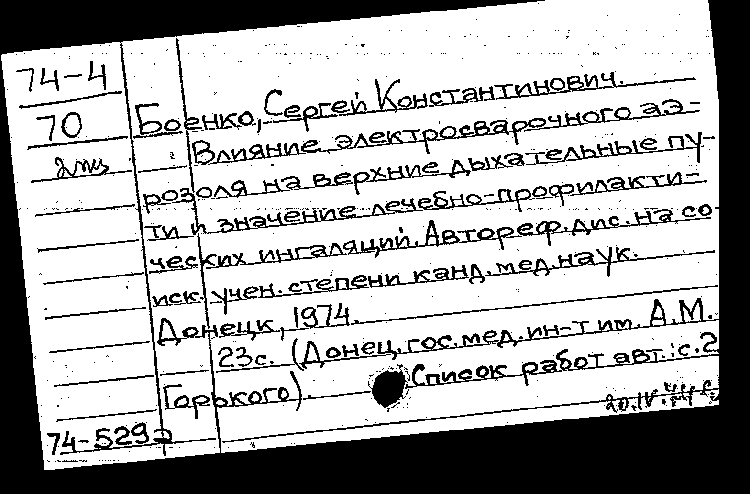 74-4
70
2 экз
Боенко, Сергей Константинович.
Влияние электросварочного аэ-
розоля на верхние дыхательные пу-
ти и значение лечебно-профилакти-
ческих ингаляций. Автореф. дис. на со-
иск. учен. степени канд. мед. наук.
Донецк, 1974.
23с. (Донец. гос. мед. ин-т им. А.М.
Горького). Список работ авт.: с.2
74-529
20.IV